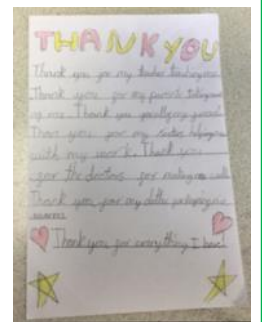 THANK YOU
Thank you for my teacher teaching me.
Thank you for my parents taking
of me. Thank you for all my
Thank you for my sister helping me
with my work. Thank you
for the doctors for making me
Thank you for my for helping me
Thank you for everything I have!